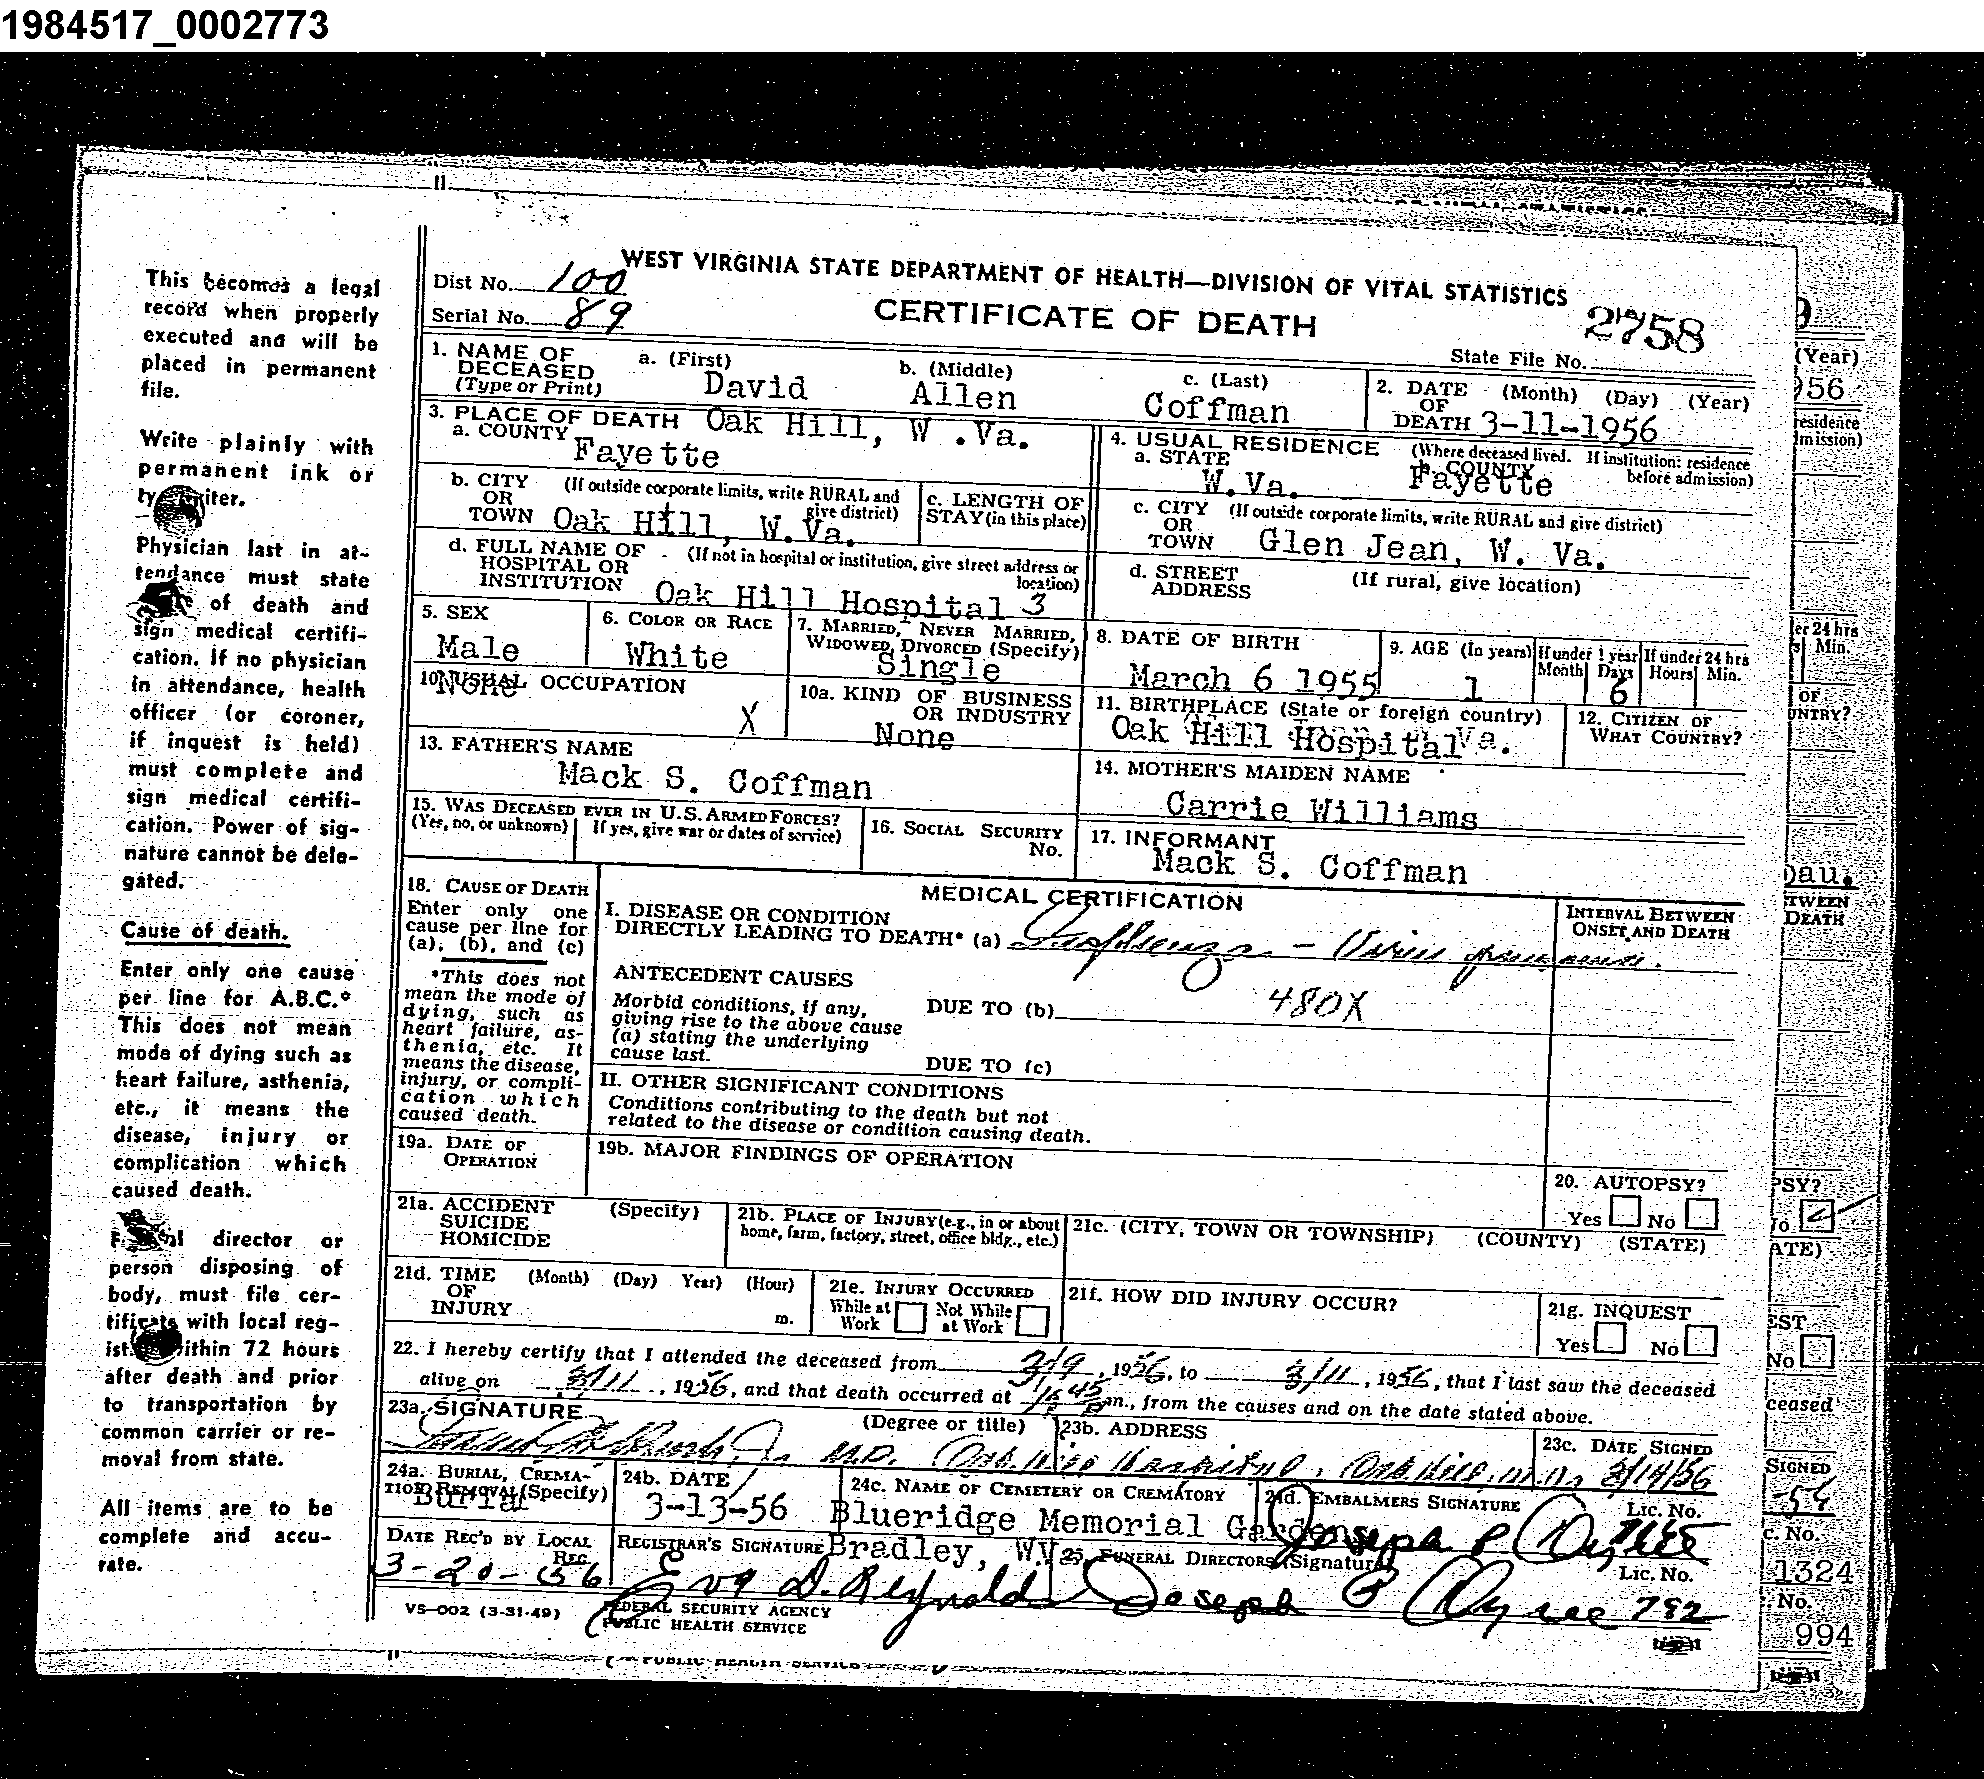 1984517_0002773
This becomes a legal
record when properly
executed and will be
placed in permanent
file.
Write plainly with
permanent ink or
Physician last in at-
tendance must state
of death and
sign medical certifi-
cation. If no physician
in attendance, health
officer (or coroner,
if inquest is held)
must complete and
sign medical certifi-
cation. Power of sig-
nature cannot be dele-
gated.
Cause of death.
Enter only one cause
per line for A.B.C.*
This does not mean
mode of dying such as
heart failure, asthenia,
etc., it means the
disease, injury or
complication which
caused death.
director or
person disposing of
body, must file cer-
tificate with local reg-
within 72 hours
after death and prior
to transportation by
common carrier or re-
moval from state.
All items are to be
complete and accu-
rate.
WEST VIRGINIA STATE DEPARTMENT OF HEALTH—DIVISION OF VITAL STATISTICS
Dist No. 100
Serial No. 89
CERTIFICATE OF DEATH
2758
State File No.
1. NAME OF DECEASED (Type or Print)
a. (First) David
b. (Middle) Allen
c. (Last) Coffman
2. DATE OF DEATH (Month) (Day) (Year) 3-11-1956
3. PLACE OF DEATH Oak Hill, W .Va.
a. COUNTY Fayette
4. USUAL RESIDENCE (Where deceased lived. If institution: residence before admission)
a. STATE W.Va.
b. COUNTY Fayette
b. CITY OR TOWN (If outside corporate limits, write RURAL and give district) Oak Hill, W.Va.
c. LENGTH OF STAY (in this place)
c. CITY OR TOWN (If outside corporate limits, write RURAL and give district) Glen Jean, W. Va.
d. FULL NAME OF HOSPITAL OR INSTITUTION (If not in hospital or institution, give street address or location) Oak Hill Hospital 3
d. STREET ADDRESS (If rural, give location)
5. SEX Male
6. COLOR OR RACE White
7. MARRIED, NEVER MARRIED, WIDOWED, DIVORCED (Specify) Single
8. DATE OF BIRTH March 6 1955
9. AGE (In years) 1
If under 1 year Month Days 6
If under 24 hrs Hours Min.
10. USUAL OCCUPATION None X
10a. KIND OF BUSINESS OR INDUSTRY None
11. BIRTHPLACE (State or foreign country) Oak Hill Hospital Va.
12. CITIZEN OF WHAT COUNTRY?
13. FATHER'S NAME Mack S. Coffman
14. MOTHER'S MAIDEN NAME Carrie Williams
15. WAS DECEASED EVER IN U.S. ARMED FORCES?
(Yes, no, or unknown) If yes, give war or dates of service)
16. SOCIAL SECURITY No.
17. INFORMANT Mack S. Coffman
18. CAUSE OF DEATH
Enter only one
cause per line for
(a), (b), and (c)
*This does not
mean the mode of
dying, such as
heart failure, as-
thenia, etc. It
means the disease,
injury, or compli-
cation which
caused death.
MEDICAL CERTIFICATION
INTERVAL BETWEEN ONSET AND DEATH
I. DISEASE OR CONDITION
DIRECTLY LEADING TO DEATH* (a) Influenza - Virus pneumonia.
ANTECEDENT CAUSES
Morbid conditions, if any,
giving rise to the above cause
(a) stating the underlying
cause last.
DUE TO (b) 480X
DUE TO (c)
II. OTHER SIGNIFICANT CONDITIONS
Conditions contributing to the death but not
related to the disease or condition causing death.
19a. DATE OF OPERATION
19b. MAJOR FINDINGS OF OPERATION
20. AUTOPSY?
Yes No
21a. ACCIDENT SUICIDE HOMICIDE (Specify)
21b. PLACE OF INJURY (e.g., in or about home, farm, factory, street, office bldg., etc.)
21c. (CITY, TOWN OR TOWNSHIP) (COUNTY) (STATE)
21d. TIME OF INJURY (Month) (Day) Year) (Hour) m.
21e. INJURY OCCURRED While at Work Not While at Work
21f. HOW DID INJURY OCCUR?
21g. INQUEST
Yes No
22. I hereby certify that I attended the deceased from 3/9, 1956, to 3/11, 1956, that I last saw the deceased
alive on 3/11, 1956, and that death occurred at m., from the causes and on the date stated above.
23a. SIGNATURE (Degree or title) M.D.
23b. ADDRESS Oak Hill Hospital, Oak Hill, W.Va.
23c. DATE SIGNED 3/14/56
24a. BURIAL, CREMATION REMOVAL (Specify) Burial
24b. DATE 3-13-56
24c. NAME OF CEMETERY OR CREMATORY Blueridge Memorial Gardens
Bradley, WV
24d. EMBALMERS SIGNATURE Joseph P Lic. No.
DATE REC'D BY LOCAL REG. 3-20-56
REGISTRAR'S SIGNATURE Eva D. Reynolds
25. FUNERAL DIRECTORS (Signature) Joseph P Lic. No. 792
VS-002 (3-31-49)
FEDERAL SECURITY AGENCY
PUBLIC HEALTH SERVICE
(Year)
956
1324
994